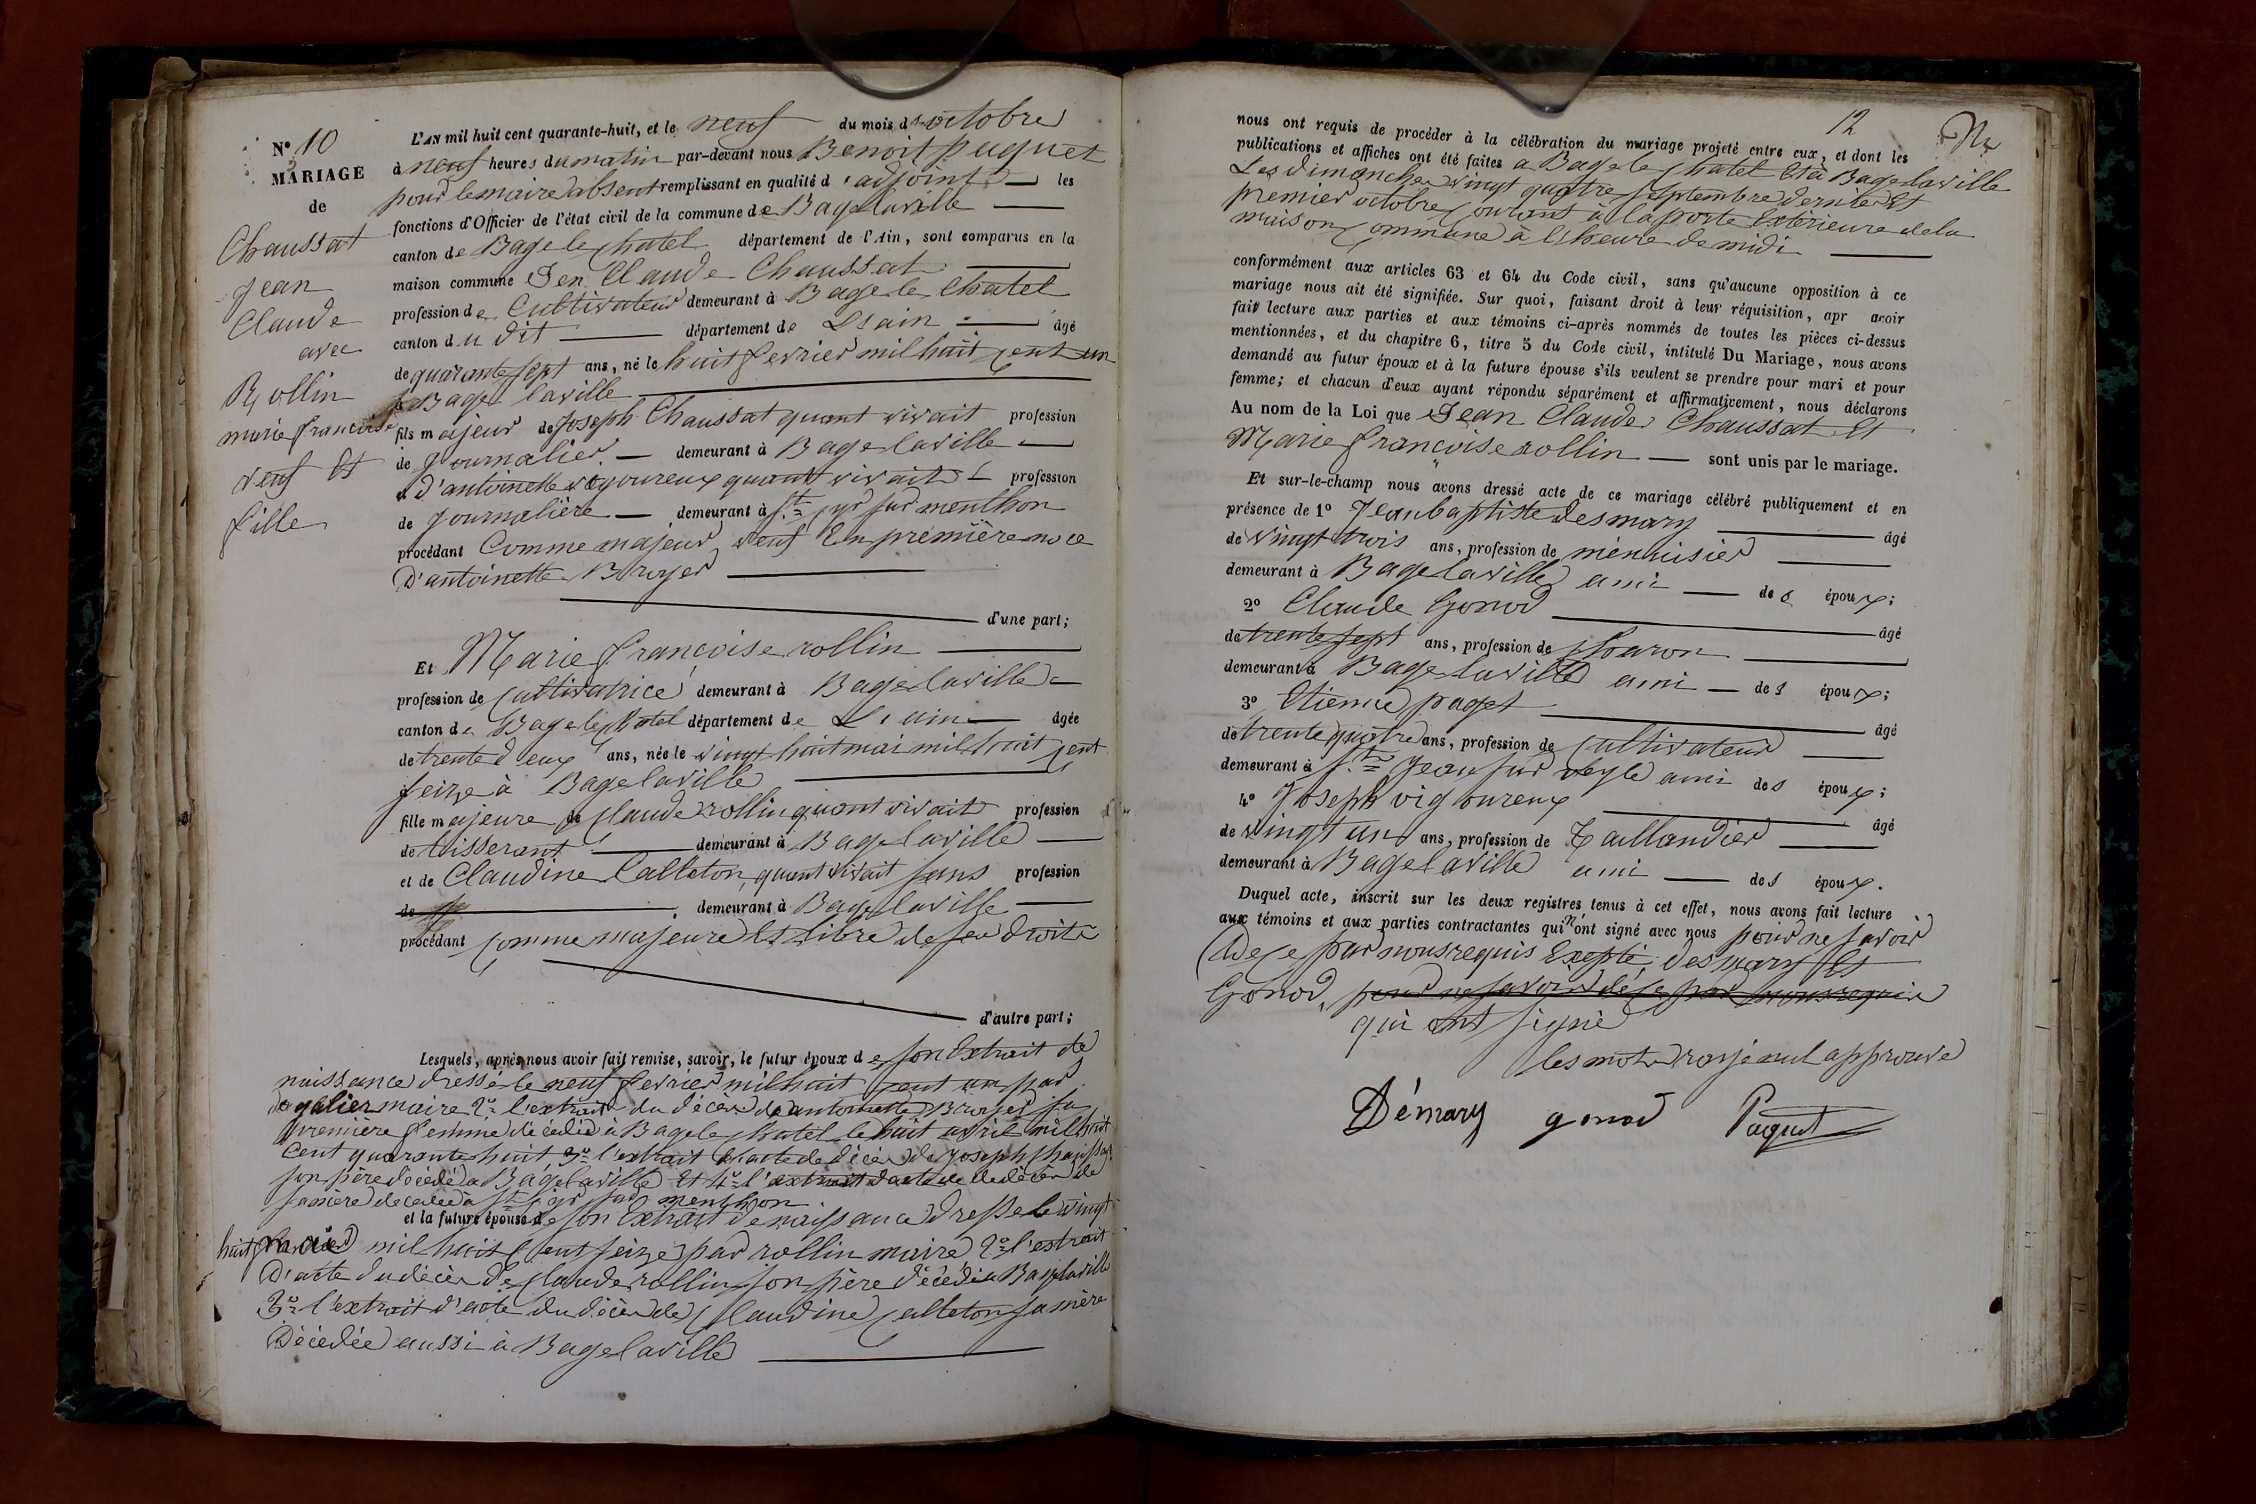 N° 10
MARIAGE
de
Chaussat
Jean
Claude
avec
Rollin
marie francoise
veuf Et
fille
L'AN mil huit cent quarante-huit, et le neuf du mois d'octobre
à neuf heures du matin par-devant nous Benoit paquet
pour le maire absent remplissant en qualité d'adjoint les
fonctions d'Officier de l'état civil de la commune de Bagé laville
canton de Bage le chatel département de l'Ain, sont comparus en la
maison commune Jen Claude Chaussat
profession de Cultivateur demeurant à Bage le Chatel
canton du dit département de L'ain âgé
de quarante sept ans, né le huit fevrier mil huit cent un
à Bage laville
fils majeur de Joseph Chaussat quant vivait profession
de Journalier demeurant à Bage laville
et d'antoinette vigoureux quant vivait profession
de Journalière demeurant à St cyr sur menthon
procédant Comme majeur veuf En première noce
D'antoinette Broyer
d'une part;
Et Marie francoise rollin
profession de cultivatrice demeurant à Bage laville
canton de Bage le chatel département de L'ain âgée
de trente deux ans, née le vingt huit mai mil huit cent
seize à Bage laville
fille majeure de claude rollin quant vivait profession
de tisserant demeurant à Bage laville
et de Claudine Calleton quant vivait sans profession
de demeurant à Bage laville
procédant comme majeure Et libre de ses droits
d'autre part;
Lesquels, après nous avoir fait remise, savoir, le futur époux de son Extrait de
naissance dressé le neuf fevrier mil huit cent un par
maire 2° l'extrait du décès de antoinette Broyer sa
première femme décédée à Bage le chatel le huit avril mil huit
Cent quarante huit, 3° l'extrait d'acte de décès de Joseph Chaussat
son père décédé à Bage laville Et 4° l'extrait d'acte de décès de
sa mère décédée à St cyr sur menthon
et la future épouse de son Extrait de naissance dressé le vingt
huit mai mil huit cent seize par rollin maire 2° l'extrait
D'acte du décès de claude rollin son père décédé à Bage laville
3° l'extrait d'acte du décès de claudine calleton sa mère
Décédée aussi à Bage laville
12
nous ont requis de procéder à la célébration du mariage projeté entre eux, et dont les
publications et affiches ont été faites a Bage le chatel Et à Bage laville
Les dimanches vingt quatre septembre dernier Et
premier octobre courant à la porte Extérieure de la
maison commune à l'heure de midi
conformément aux articles 63 et 64 du Code civil, sans qu'aucune opposition à ce
mariage nous ait été signifiée. Sur quoi, faisant droit à leur réquisition, apr avoir
fait lecture aux parties et aux témoins ci-après nommés de toutes les pièces ci-dessus
mentionnées, et du chapitre 6, titre 5 du Code civil, intitulé Du Mariage, nous avons
demandé au futur époux et à la future épouse s'ils veulent se prendre pour mari et pour
femme; et chacun d'eux ayant répondu séparément et affirmativement, nous déclarons
Au nom de la Loi que Jean Claude Chaussat Et
Marie francoise rollin sont unis par le mariage.
Et sur-le-champ nous avons dressé acte de ce mariage célébré publiquement et en
présence de 1° Jean baptiste desmary âgé
de vingt trois ans, profession de menuisier
demeurant à Bage laville ami des époux;
2° Claude Gonod âgé
de trente sept ans, profession de charon
demeurant à Bage laville ami des époux;
3° Etienne paget âgé
de trente quatre ans, profession de cultivateur
demeurant à St Jean sur veyle ami des époux;
4° Joseph vigoureux âgé
de vingt un ans, profession de Taillandier
demeurant à Bage laville ami des époux.
Duquel acte, inscrit sur les deux registres tenus à cet effet, nous avons fait lecture
aux témoins et aux parties contractantes qui n'ont signé avec nous pour ne savoir
de ce par nous requis Excepté desmary Et
Gonod, pour ne savoir de ce par nous requis
qui ont signé
les mots rayé nul approuvé
Démary gonod Paquet